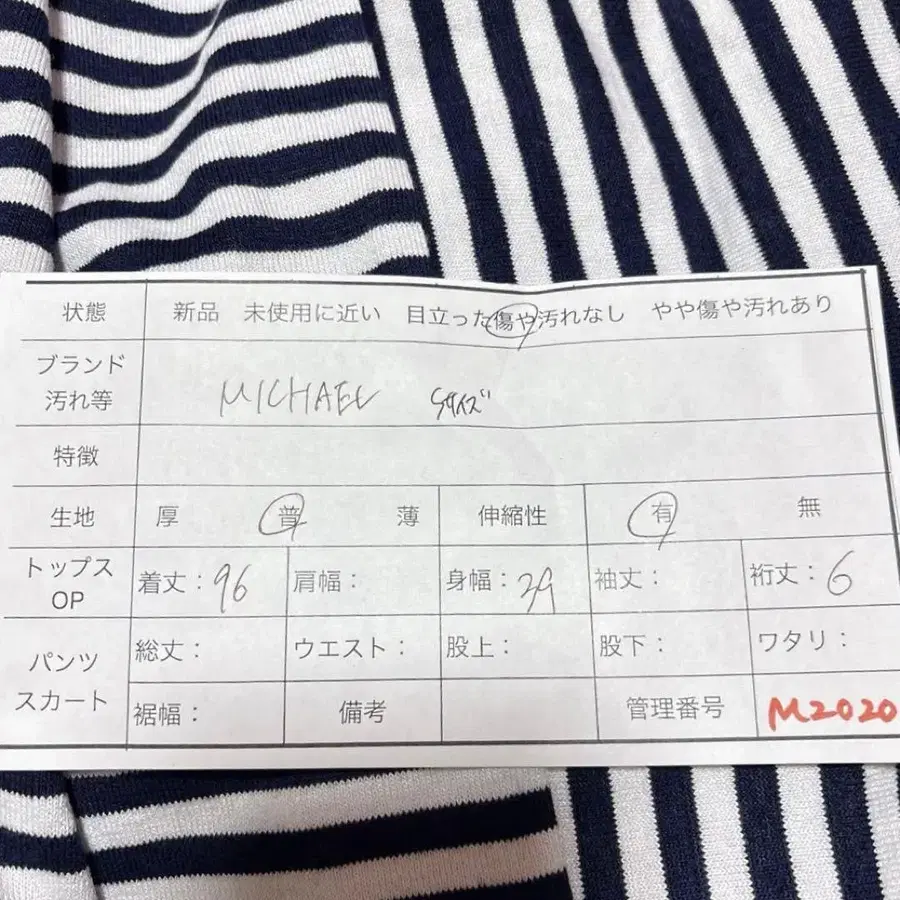 状態 新品 未使用に近い 目立った傷や汚れなし やや傷や汚れあり
ブランド
汚れ等 MICHAEL Sサイズ
特徴
生地 厚 普 薄 伸縮性 有 無
トップス
OP 着丈:96 肩幅: 身幅:39 袖丈: 裄丈:6
パンツ
スカート
総丈: ウエスト: 股上: 股下: ワタリ:
裾幅: 備考 管理番号 M2020